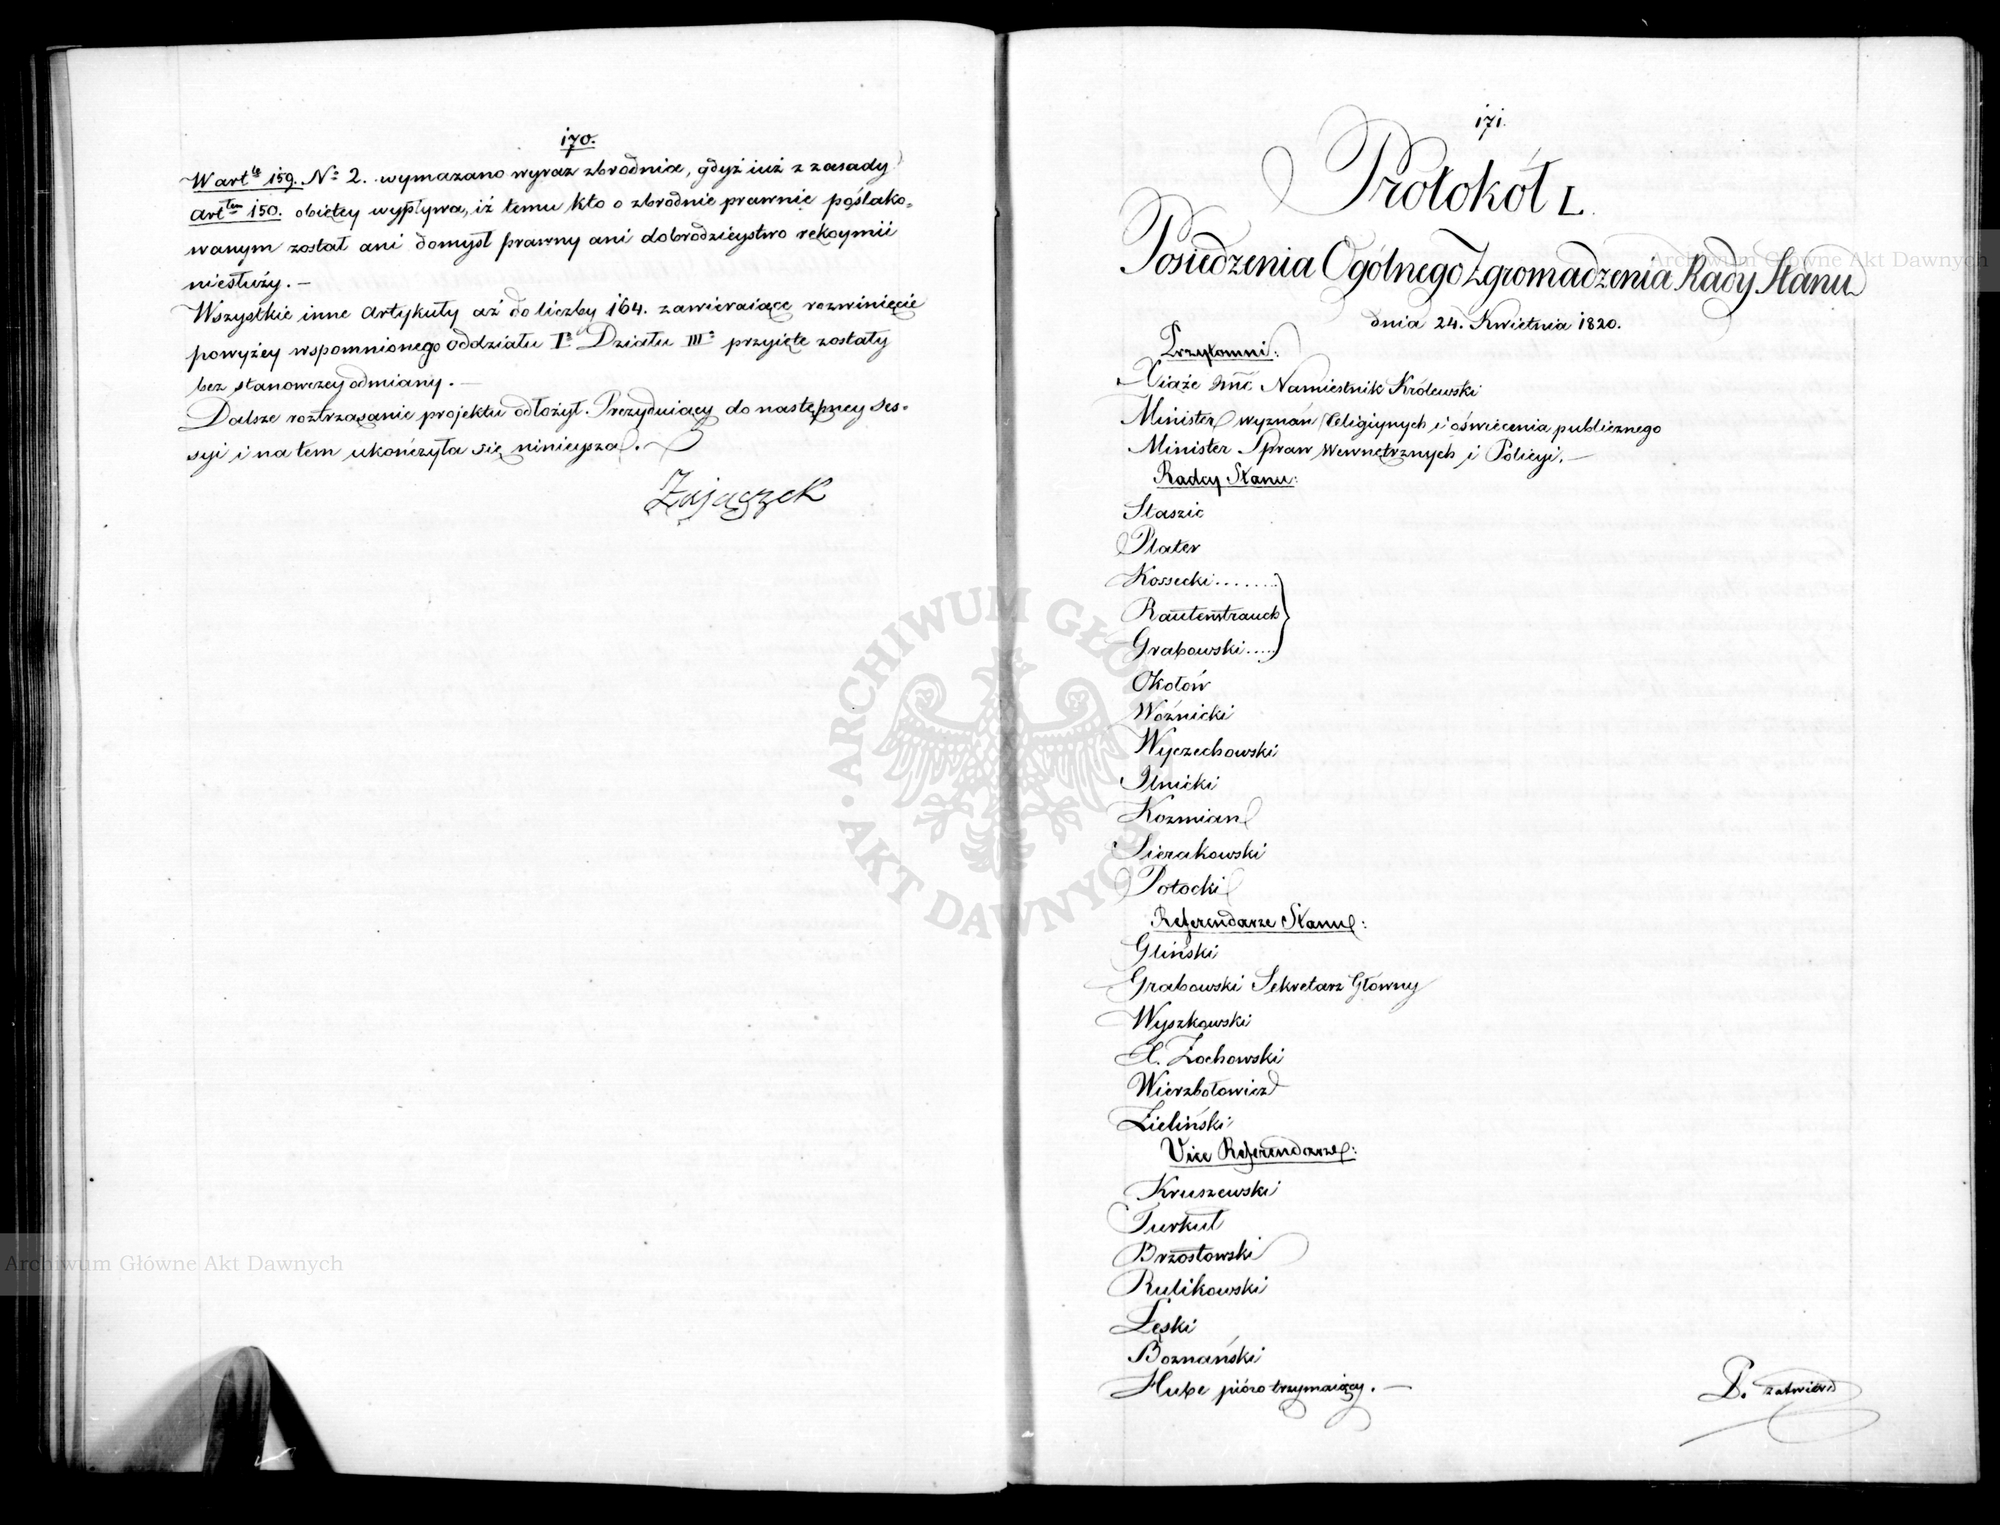 170.
W art.le 159. No 2. wymazano wyraz zbrodnia, gdyż iuż z zasady
art.tem 150. obiętey wypływa, iż temu kto o zbrodnie prawnie poślako-
wanym został ani domysł prawny ani dobrodzieystwo rekoymii
niesłuży. —
Wszystkie inne artykuły aż do liczby 164. zawieraiące rozwinięcie
powyżey wspomnionego oddziału Io Działu IIIo przyięte zostały
bez stanowczey odmiany. —
Dalsze roztrząsanie projektu odłożył Prezyduiący do następney ses-
syi i na tem ukończyła się ninieysza. —
Zajączek
171.
Protokół L.
Posiedzenia Ogólnego Zgromadzenia Rady Stanu
dnia 24. Kwietnia 1820.
Przytomni:
Xiąże Jmć Namiestnik Królewski
Minister wyznań Religiynych i oświecenia publicznego
Minister Spraw Wewnętrznych i Policyi. —
Radcy Stanu:
Staszic
Plater
Kossecki.......
Rautenstrauch
Grabowski.....
Okołów
Woźnicki
Wyczechowski
Ilnicki
Kozmian
Sierakowski
Potocki
Referendarze Stanu:
Gliński
Grabowski Sekretarz Główny
Wyszkowski
X. Żochowski
Wierzbołowicz
Zieliński
Vice Referendarze:
Kruszewski
Turkuł
Brzostowski
Rulikowski
Łęski
Boznański
Hube pióro trzymaiący. —
Archiwum Główne Akt Dawnych
Archiwum Główne Akt Dawnych
ARCHIWUM GŁÓWNE
AKT DAWNYCH